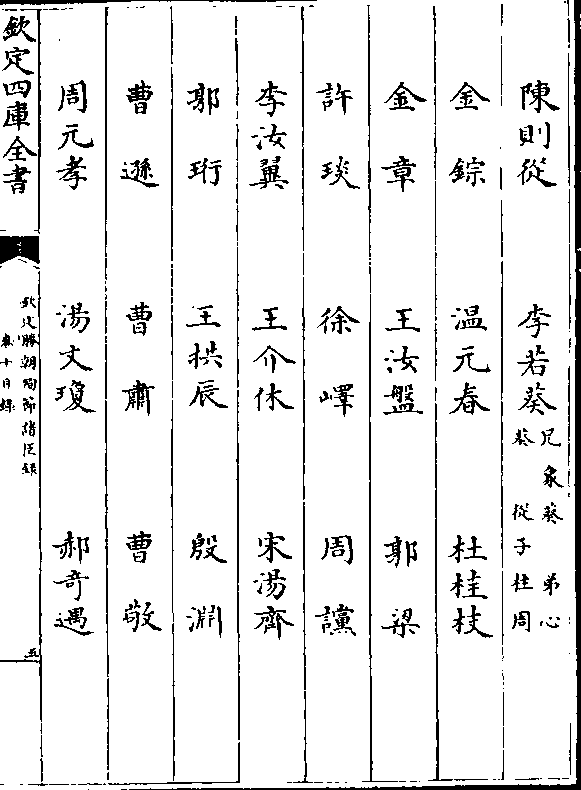 陳則從 李若葵兄象葵 弟心葵 從子柱周
金綜 温元春 杜桂枝
金章 王汝盤 郭梁
許琰 徐嶧 周讜
李汝翼 王介休 宋湯齊
郭珩 王拱辰 殷淵
曹遜 曹肅 曹敬
周元孝 湯文瓊 郝奇遇
欽定四庫全書
欽定勝朝殉節諸臣録
卷十目録
五